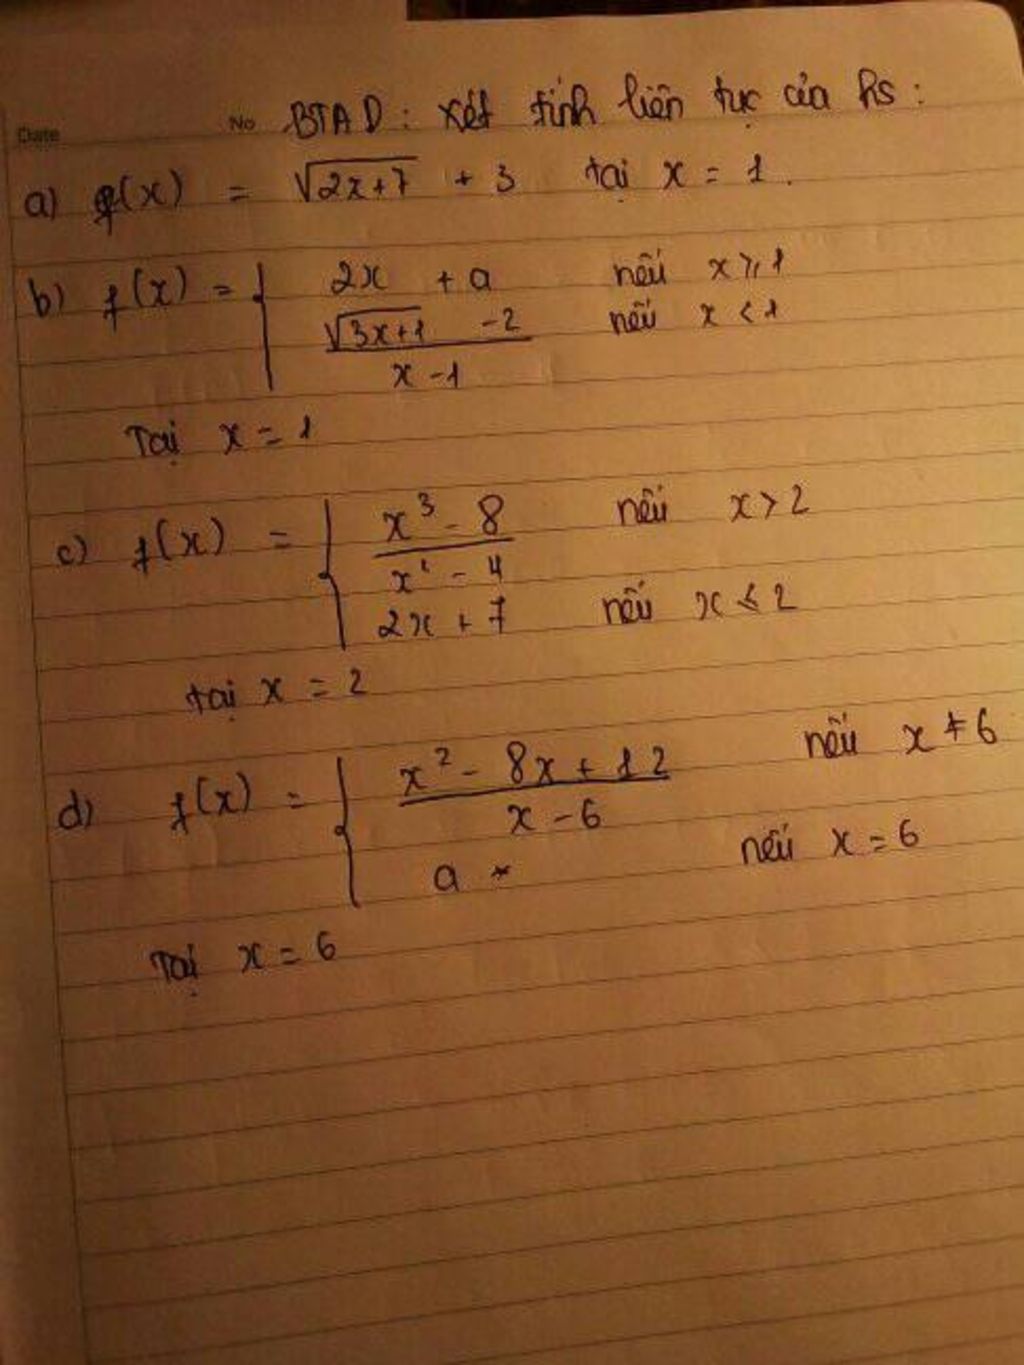 Date No BTAD : Xét tính liên tục của hs :
a) g(x) = √2x+7 + 3 tại x = 1.
b) f(x) = { 2x + a nếu x ≥ 1
√3x+1 - 2 nếu x < 1
x - 1
Tại x = 1
c) f(x) = { x³ - 8 nếu x > 2
x² - 4
2x + 7 nếu x ≤ 2
tại x = 2
d) f(x) = { x² - 8x + 12 nếu x ≠ 6
x - 6
a nếu x = 6
Tại x = 6